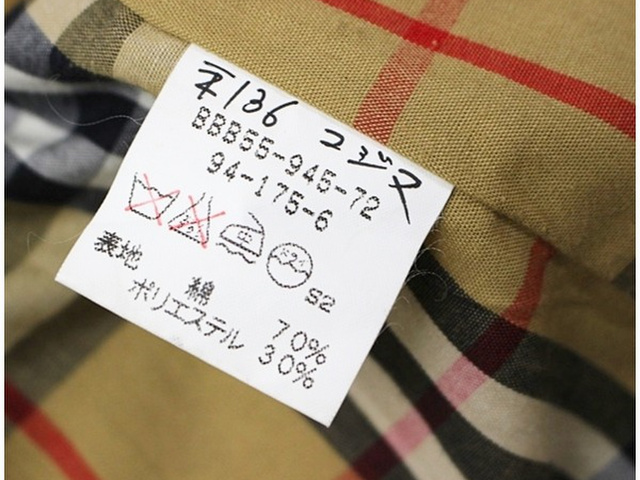 136 コジマ
BBB55-945-72
94-175-6
S2
表地 綿 70%
ポリエステル 30%